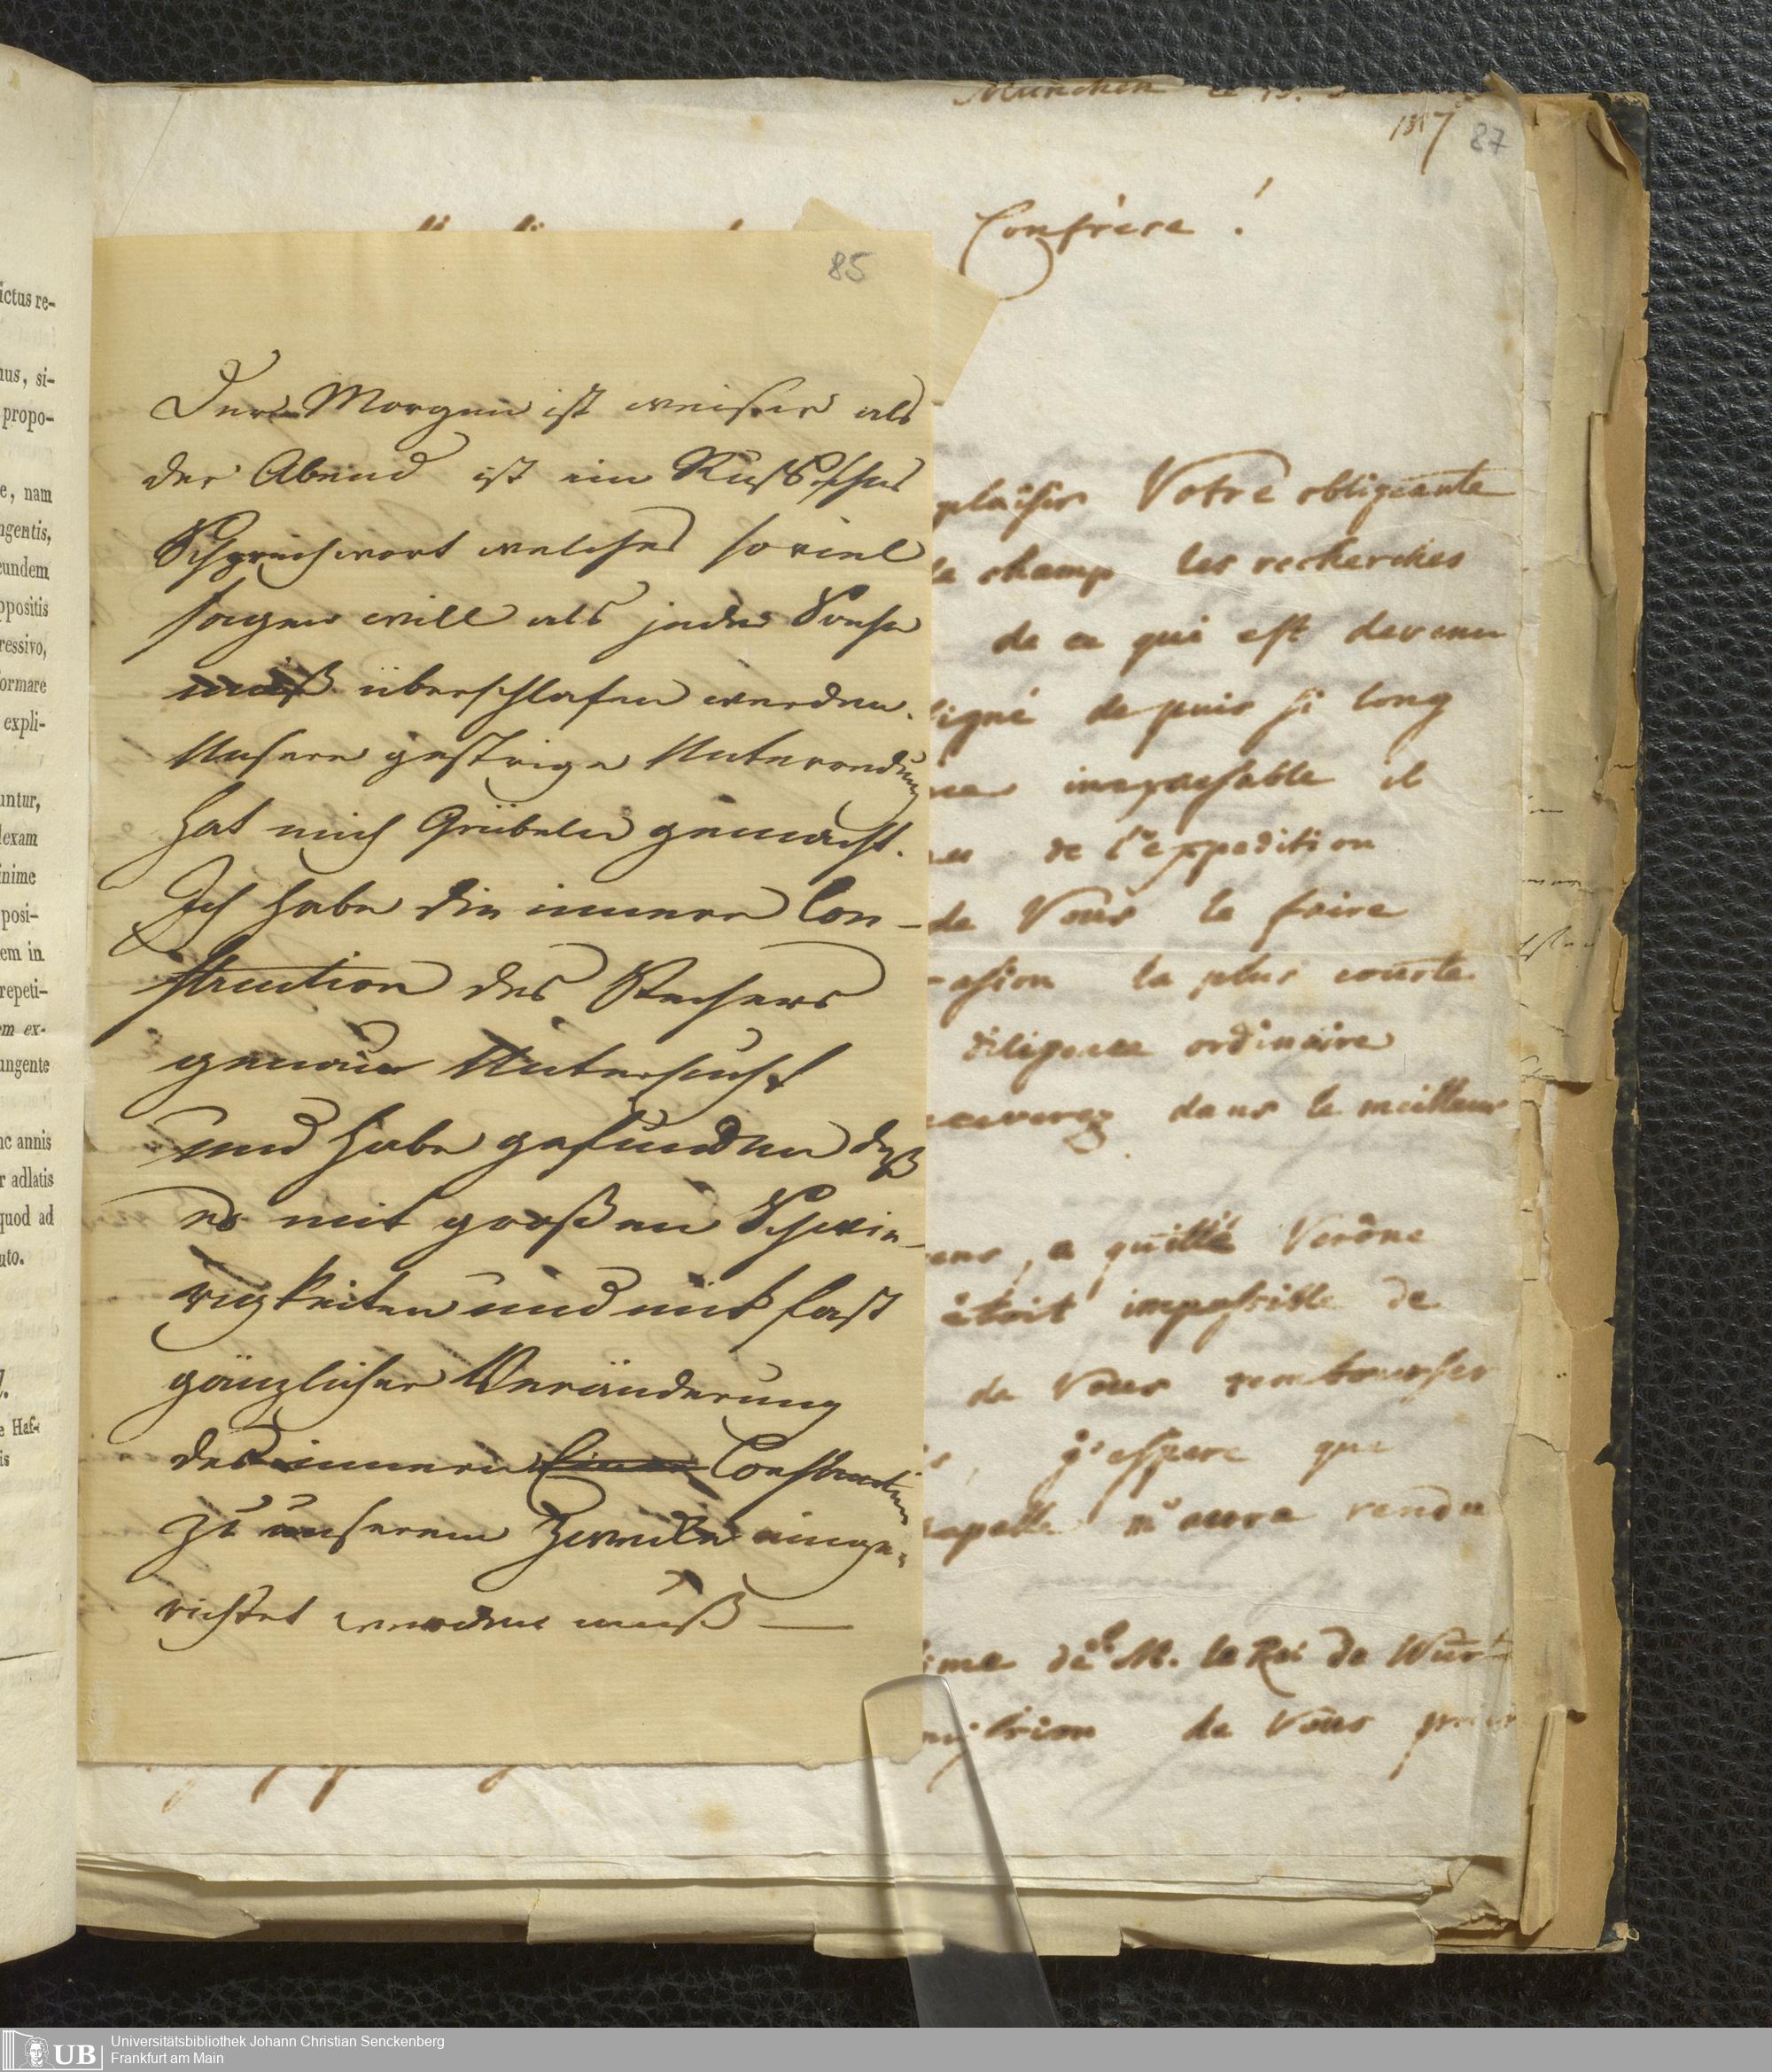 ictus re-
ius, si-
propo-
e, nam
ngentis,
eundem
ppositis
ressivo,
formare
expli-
untur,
lexam
inime
posi-
em in
repeti-
em ex-
ungente
nc annis
r adlatis
quod ad
uto.
e Haf-
is
85
Der Morgen ist weiser als
der Abend ist ein Russisches
Sprichwort welches so viel
sagen will als jede Sache
muß überschlafen werden.
Unsere gestrige Unterredung
hat mich Grübeln gemacht.
Ich habe die innere Con-
struction des Rechers
genau Untersucht
und habe gefunden daß
es mit großen Schwie-
rigkeiten und mit fast
gänzlicher Veränderung
der innern Construction
zu unserem Zwecke einge-
richtet werden muß —
München
1817
87
Confrère!
plaisir Votre obligeante
le champ les recherches
de ce qui est devenu
ligné depuis si long
de l'expedition
de Vous le faire
la plus courte
diligence ordinaire
dans le meilleur
, a quitté Verône
étoit impossible de
de Vous rembourser
j'espere que
m'aura rendu
M. le Roi de Würt
de Vous
UB
Universitätsbibliothek Johann Christian Senckenberg
Frankfurt am Main